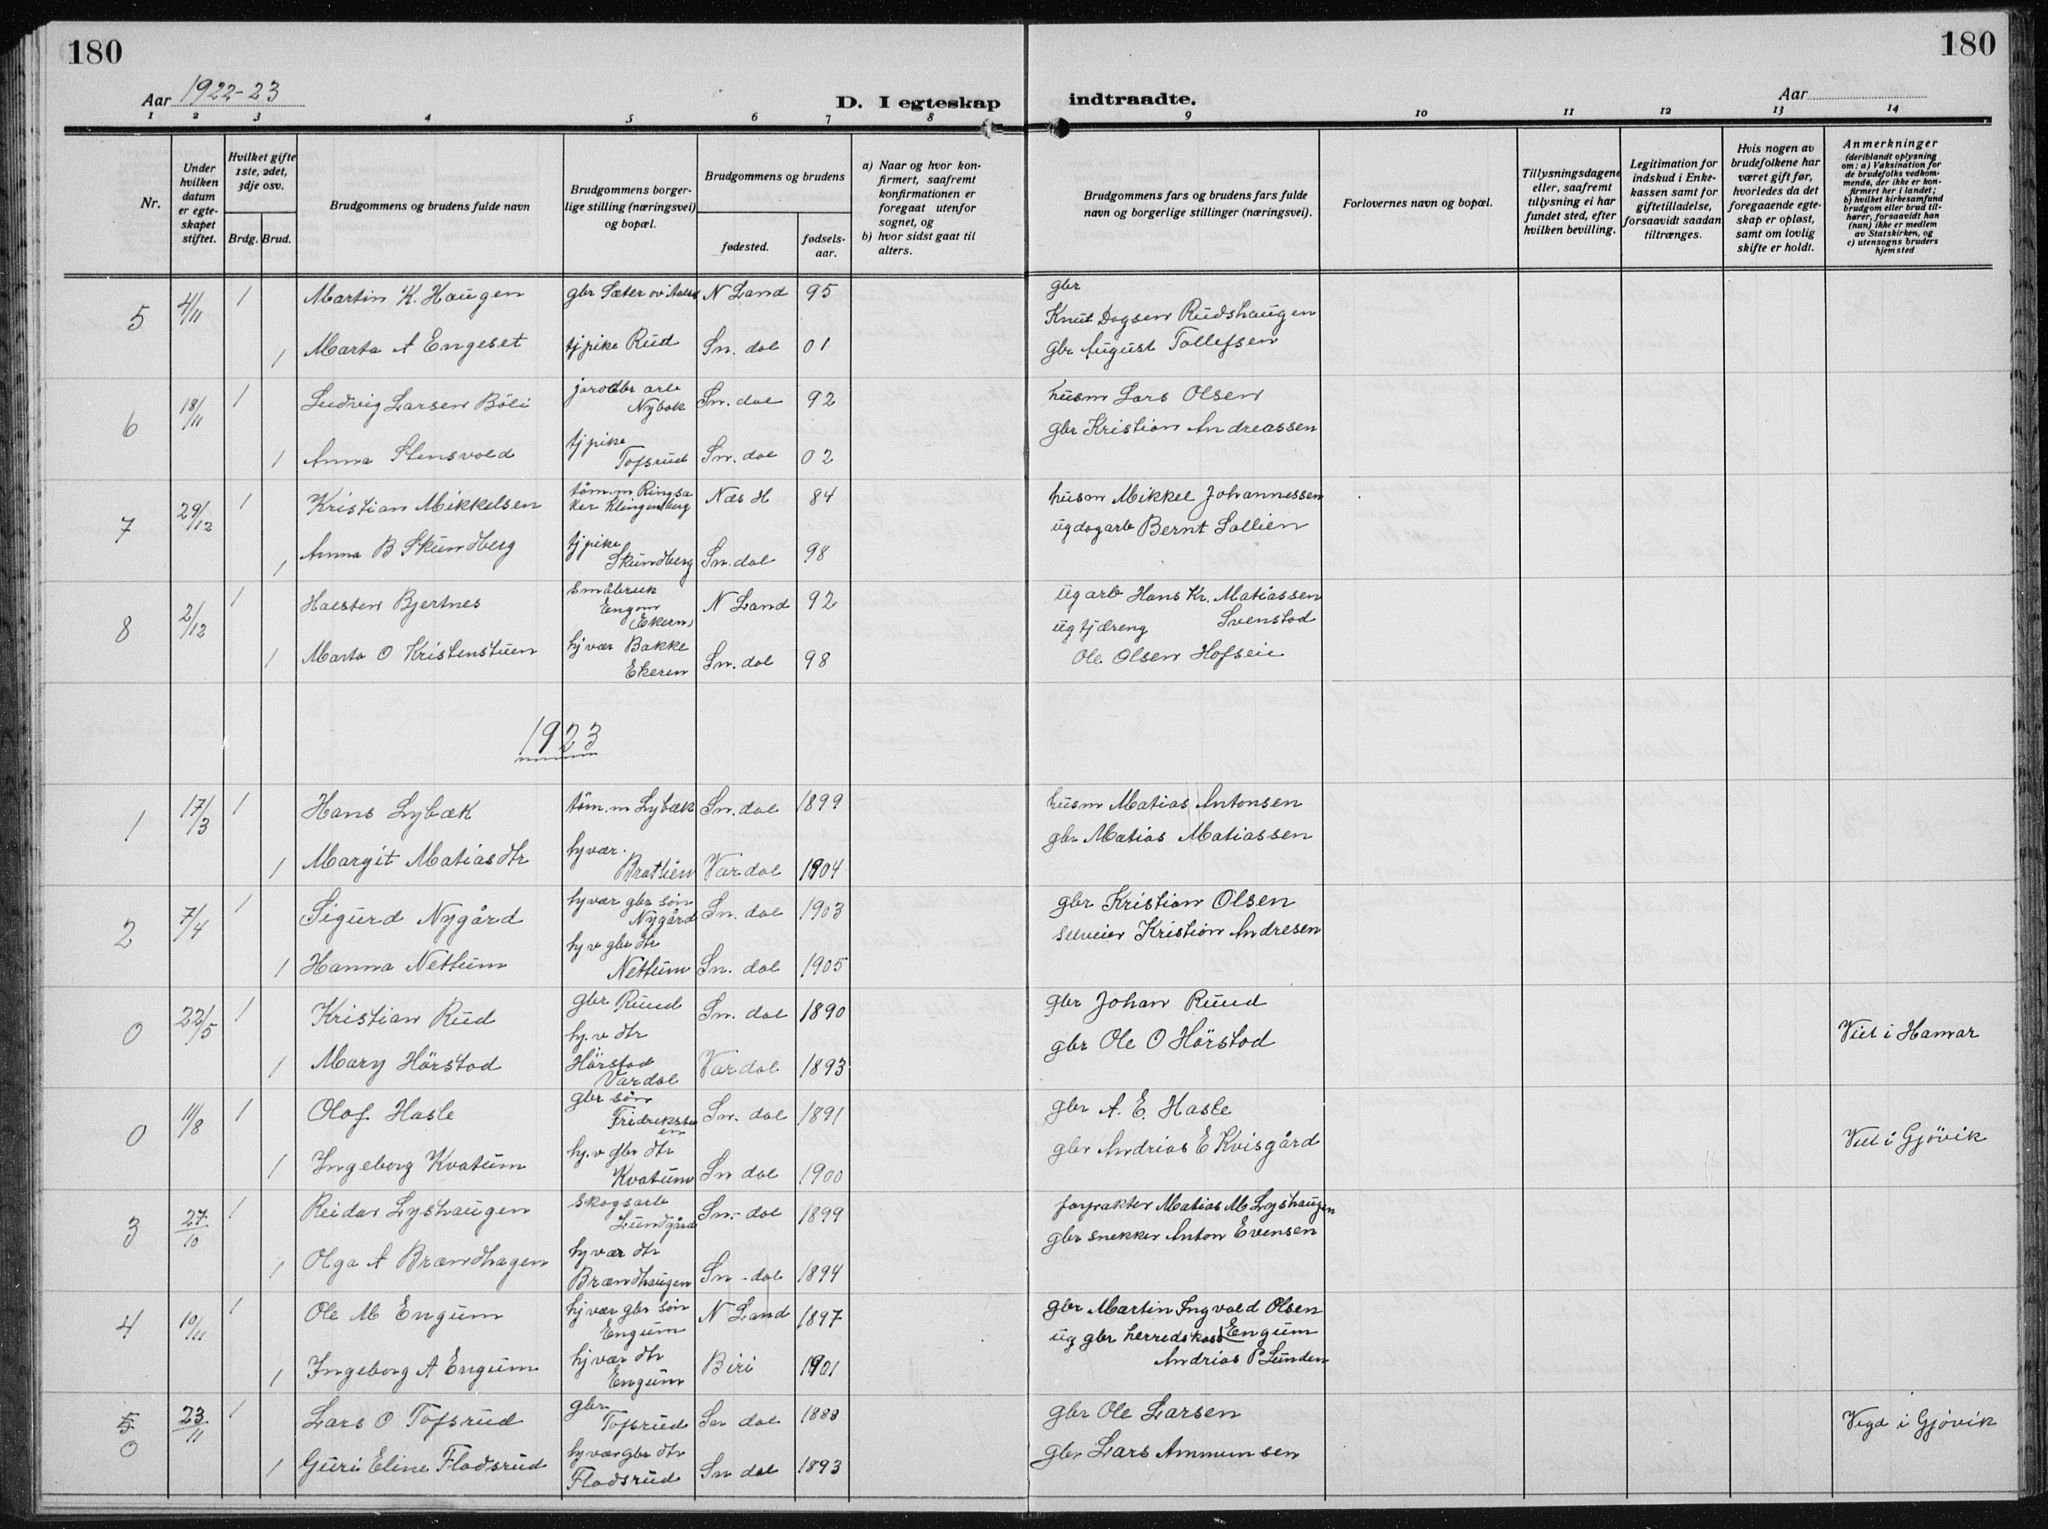 180
180
Aar 1922-23
D. I egteskap
indtraadte.
Aar
1 2 3 4 5 6 7 8 9 10 11 12 13 14
Nr.
Under hvilken datum er egteskapet stiftet.
Hvilket gifte 1ste, 2det, 3dje osv.
Brdg. Brud.
Brudgommens og brudens fulde navn
Brudgommens borgerlige stilling (næringsvei) og bopæl.
Brudgommens og brudens
fødested.
fødselsaar.
a) Naar og hvor konfirmert, saafremt konfirmationen er foregaat utenfor sognet, og
b) hvor sidst gaat til alters.
Brudgommens fars og brudens fars fulde navn og borgerlige stillinger (næringsvei).
Forlovernes navn og bopæl.
Tillysningsdagene eller, saafremt tillysning ei har fundet sted, efter hvilken bevilling.
Legitimation for indskud i Enkekassen samt for giftetilladelse, forsaavidt saadan tiltrænges.
Hvis nogen av brudefolkene har været gift før, hvorledes da det foregaaende egteskap er opløst, samt om lovlig skifte er holdt.
Anmerkninger
(deriblandt oplysning om: a) Vaksination for de brudefolks vedkommende, der ikke er konfirmert her i landet; b) hvilket kirkesamfund brudgom eller brud tilhører, forsaavidt han (hun) ikke er medlem av Statskirken, og c) utensogns bruders hjemsted
5 4/11 1 Martin K. Haugen gbr Sæter N Land 95 gbr Knut Dagsen Rudshaugen
1 Marta A Engeset tj pike Rud Sn. dal 01 gbr August Tollefsen
6 18/11 1 Ludvig Larsen Böli Sn. dal 92 husm Lars Olsen
1 Anna Stensvold tj pike Tofsrud Sn. dal 02 gbr Kristian Andreassen
7 29/12 1 Kristian Mikkelsen töm.m Ringsaker Klingenberg Næs H 84 husm Mikkel Johannessen
1 Anna B Skundberg tj pike Skundberg Sn. dal 98 ug dagarb Bernt Sollien
8 2/12 1 Halsten Bjertnes Småbruk Engom (Ekern) N Land 92 ug arb Hans Kr. Matiassen Svenstad
1 Marta O Kristenstuen hj vær Bakke Ekeren Sn. dal 98 ug tjdreng Ole Olsen Hofseie
1923
1 17/3 1 Hans Lybæk töm.m Lybæk Sn. dal 1899 husm Matias Antonsen
1 Margit Matiasdtr hj vær. Bratlien Vardal 1904 gbr Matias Matiassen
2 7/4 1 Sigurd Nygård hj vær gbr sön Nygård Sn. dal 1903 gbr Kristian Olsen
1 Hanna Nettum hj v gbr dtr Nettum Sn. dal 1905 selveier Kristian Andresen
0 22/5 1 Kristian Rud gbr Ruud Sn. dal 1890 gbr Johan Ruud
1 Mary Hörstad hj. v dtr Hörstad Vardal Vardal 1893 gbr Ole O Hörstad Viet i Hamar
0 11/8 1 Olaf Hasle gbr sön Sn. dal 1891 gbr A. E. Hasle
1 Ingeborg Kvatum hj. v gbr dtr Kvatum Sn dal 1900 gbr Andrias E Kvisgård Viet i Gjövik
3 27/10 1 Reidar Lyshaugen Skogsarb Lundgård Sn.- dal 1899 forpakter Matias M Lyshaugen
1 Olga A Brændhagen hj vær dtr Brændhaugen Sn - dal 1894 gbr snekker Anton Evensen
4 10/11 1 Ole M Engum hj vær gbr sön Engum N Land 1897 gbr Martin Ingvald Olsen Engum
1 Ingeborg A Engum hj vær dtr Engum Biri 1901 ug gbr herredskass Andrias P Lunden
5 0 23/11 1 Lars O Tofsrud gbr Tofsrud Sn dal 1888 gbr Ole Larsen
1 Guri Eline Fladsrud hj vær gbr dtr Fladsrud Sn dal 1893 gbr Lars Ammunsen Vigd i Gjövik